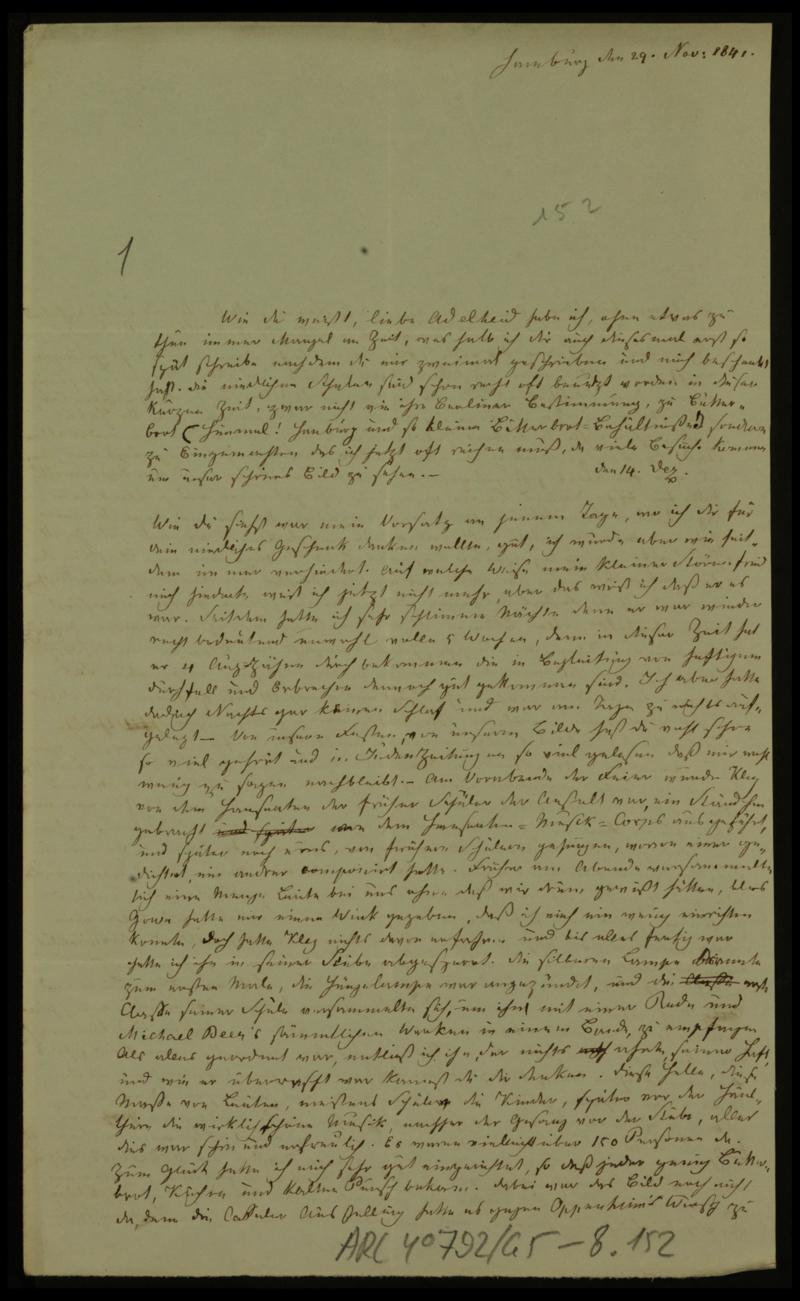 Hamburg den 29. Nov: 1841.
152
1
Wie du weißt, liebe Adelheid habe ich, ohne etwas zu
thun immer Mangel an Zeit, weshalb ich dir auch dieses mal erst so
spät schreibe nachdem du mir zweimal geschrieben und mich beschenkt
hast. die niedlichen Schalen sind schon recht oft benützt worden in dieser
kurzen Zeit, zwar nicht wie ihre Berliner Bestimmung, zu Butter-
brot (Himmel! Hamburg und so kleine Butterbrot-Behältnisse!) sondern
zu Eingemachten das ich jetzt oft reichen muß, da viele Besuche kommen
um unser schönes Bild zu sehen.—
den 14. Dez.
Wie du siehst war mein Vorsatz an jenem Tage, wo ich dir für
dein niedliches Geschenk danken wollte, gut, ich wurde aber wie seit-
dem immer verhindert. Auf welche Weise mein kleiner Störenfried
mich hinderte weiß ich jetzt nicht mehr, aber das weiß ich daß er es
war. Seitdem hatte ich sehr schlimme Nächte denn er war wieder
recht bedeutend unwohl volle 5 Wochen, denn in dieser Zeit hat
er 4 Augzähne durch bekommen die in Begleitung von heftigem
Durchfall und Erbrechen dennoch gut gekommen sind. Ich aber hatte
dadurch Nachts gar keinen Schlaf und war am Tage zu nichts auf-
gelegt.— Von unsern Festen, von unserm Bilde hast du wohl schon
so viel gehört und in Judenzeitungen so viel gelesen daß mir wohl
wenig zu sagen nachbleibt.— Am Vorabende der Feier wurde Kley
von dem Hanseaten der früher Schüler der Anstalt war, ein Ständchen
gebracht und später von dem Hanseaten-Musik-Corps ausgeführt,
und später noch eines, von frühern Schülern gesungen, wovon einer ge-
dichtet, ein andrer componirt hatte. Früher am Abende versammelten
sich eine Menge Leute bei uns ohne daß wir drum gewußt hätten,
hatte mir einen Wink gegeben, daß ich mich ein wenig einrichten
konnte, doch hatte Kley nichts davon erfahren und bis alles fertig war
hatte ich ihn in seiner Stube abgesperrt. die silberne Lampe brannte
zum ersten Male, die Hängelampe war angezündet, und die Classe erste
Classe seiner Schule versammelte sich, um ihn mit einer Rede und
Michael Beer's sämmtlichen Werken in einem Bande, zu empfangen
Als alles geordnet war, entließ ich ihn, der nichts ahnte, seiner Haft,
und wie er überrascht war kannst du dir denken. Diese Helle, diese
Masse von Leuten, meistens Schüler die Kinder, später vor der Haus-
thüre die wirklich schöne Musik, nachher der Gesang vor der Stube, alles
dies war schön und erfreulich. Es waren vielleicht über 150 Personen da.
Zum Glück hatte ich mich sehr gut eingerichtet, so daß jeder genug Butter-
brot, Kuchen und kalten Punsch bekam. dabei war das Bild noch nicht
da, denn die Ausstellung hatte es gegen Oppenheim's Wunsch zu
ARC 4° 792/G5-8.152